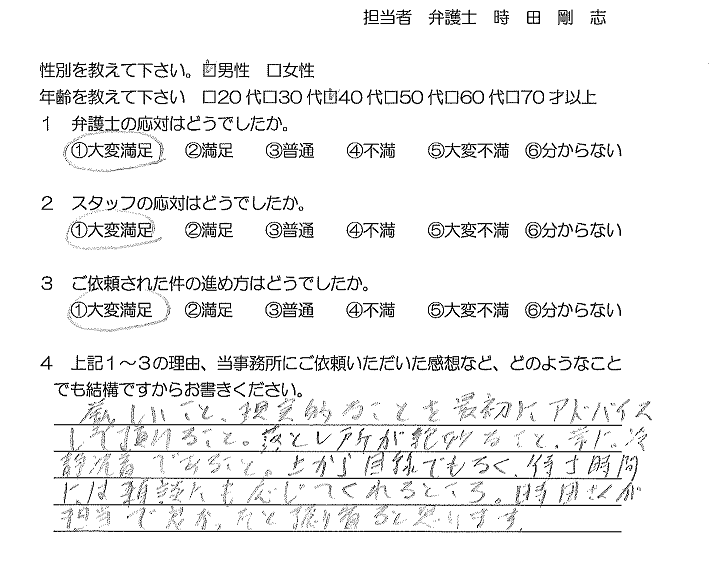 担当者 弁護士 時 田 剛 志
性別を教えて下さい。☑男性 □女性
年齢を教えて下さい □20代□30代☑40代□50代□60代□70才以上
1 弁護士の応対はどうでしたか。
①大変満足 ②満足 ③普通 ④不満 ⑤大変不満 ⑥分からない
2 スタッフの応対はどうでしたか。
①大変満足 ②満足 ③普通 ④不満 ⑤大変不満 ⑥分からない
3 ご依頼された件の進め方はどうでしたか。
①大変満足 ②満足 ③普通 ④不満 ⑤大変不満 ⑥分からない
4 上記1~3の理由、当事務所にご依頼いただいた感想など、どのようなこと
でも結構ですからお書きください。
厳しいこと、現実的なことを最初にアドバイス
して頂けること。落とし所が絶妙なこと、常に冷
静沈着であること。上から目線でもなく、待ち時間
には雑談にも応じてくれるところ。時田さんが
担当で良かったと振り返ると思います。